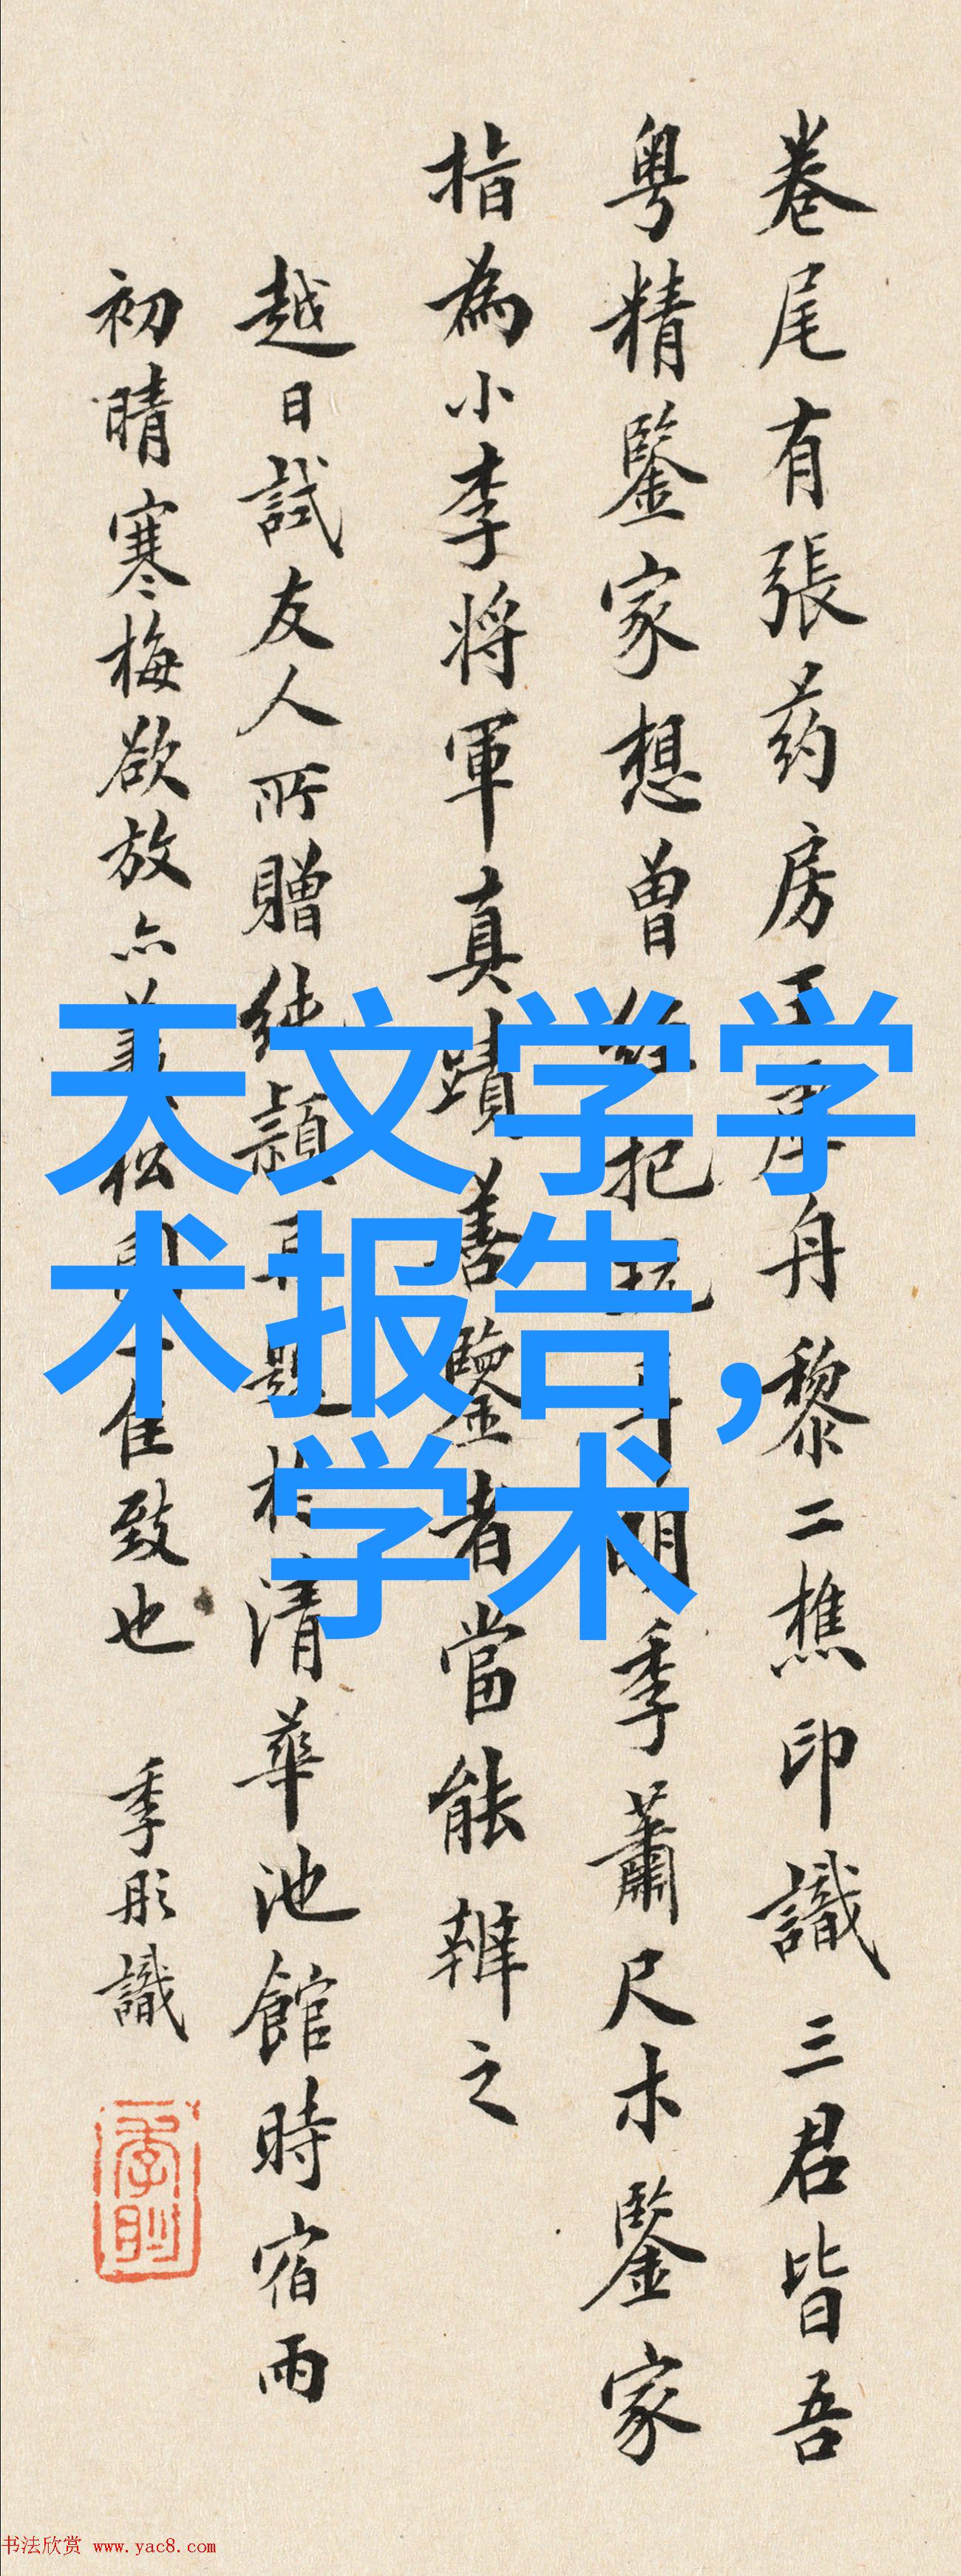 卷尾有張药房舟黎二樵印識三君皆吾
粤精鑒家想曾經把玩明季蕭尺木鑒家
指為小李将軍真蹟善鑒者當能辨之
越日試友人所贈純穎再題於清華池館時宿雨
初晴寒梅欲放亦松間一佳致也 季彤識
天文学学
术报告，
学术
书法欣赏 www.yac8.com